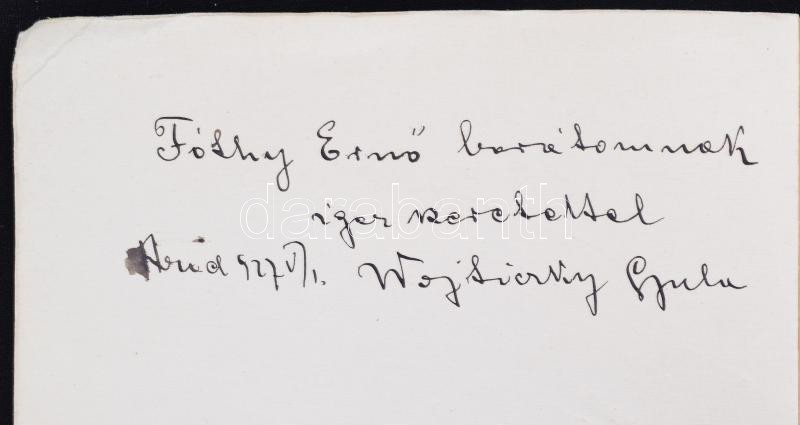 Fóthy Ernő barátomnak
igaz szeretettel
Arad 927 V/1. Wojticzky Gyula
darabanth